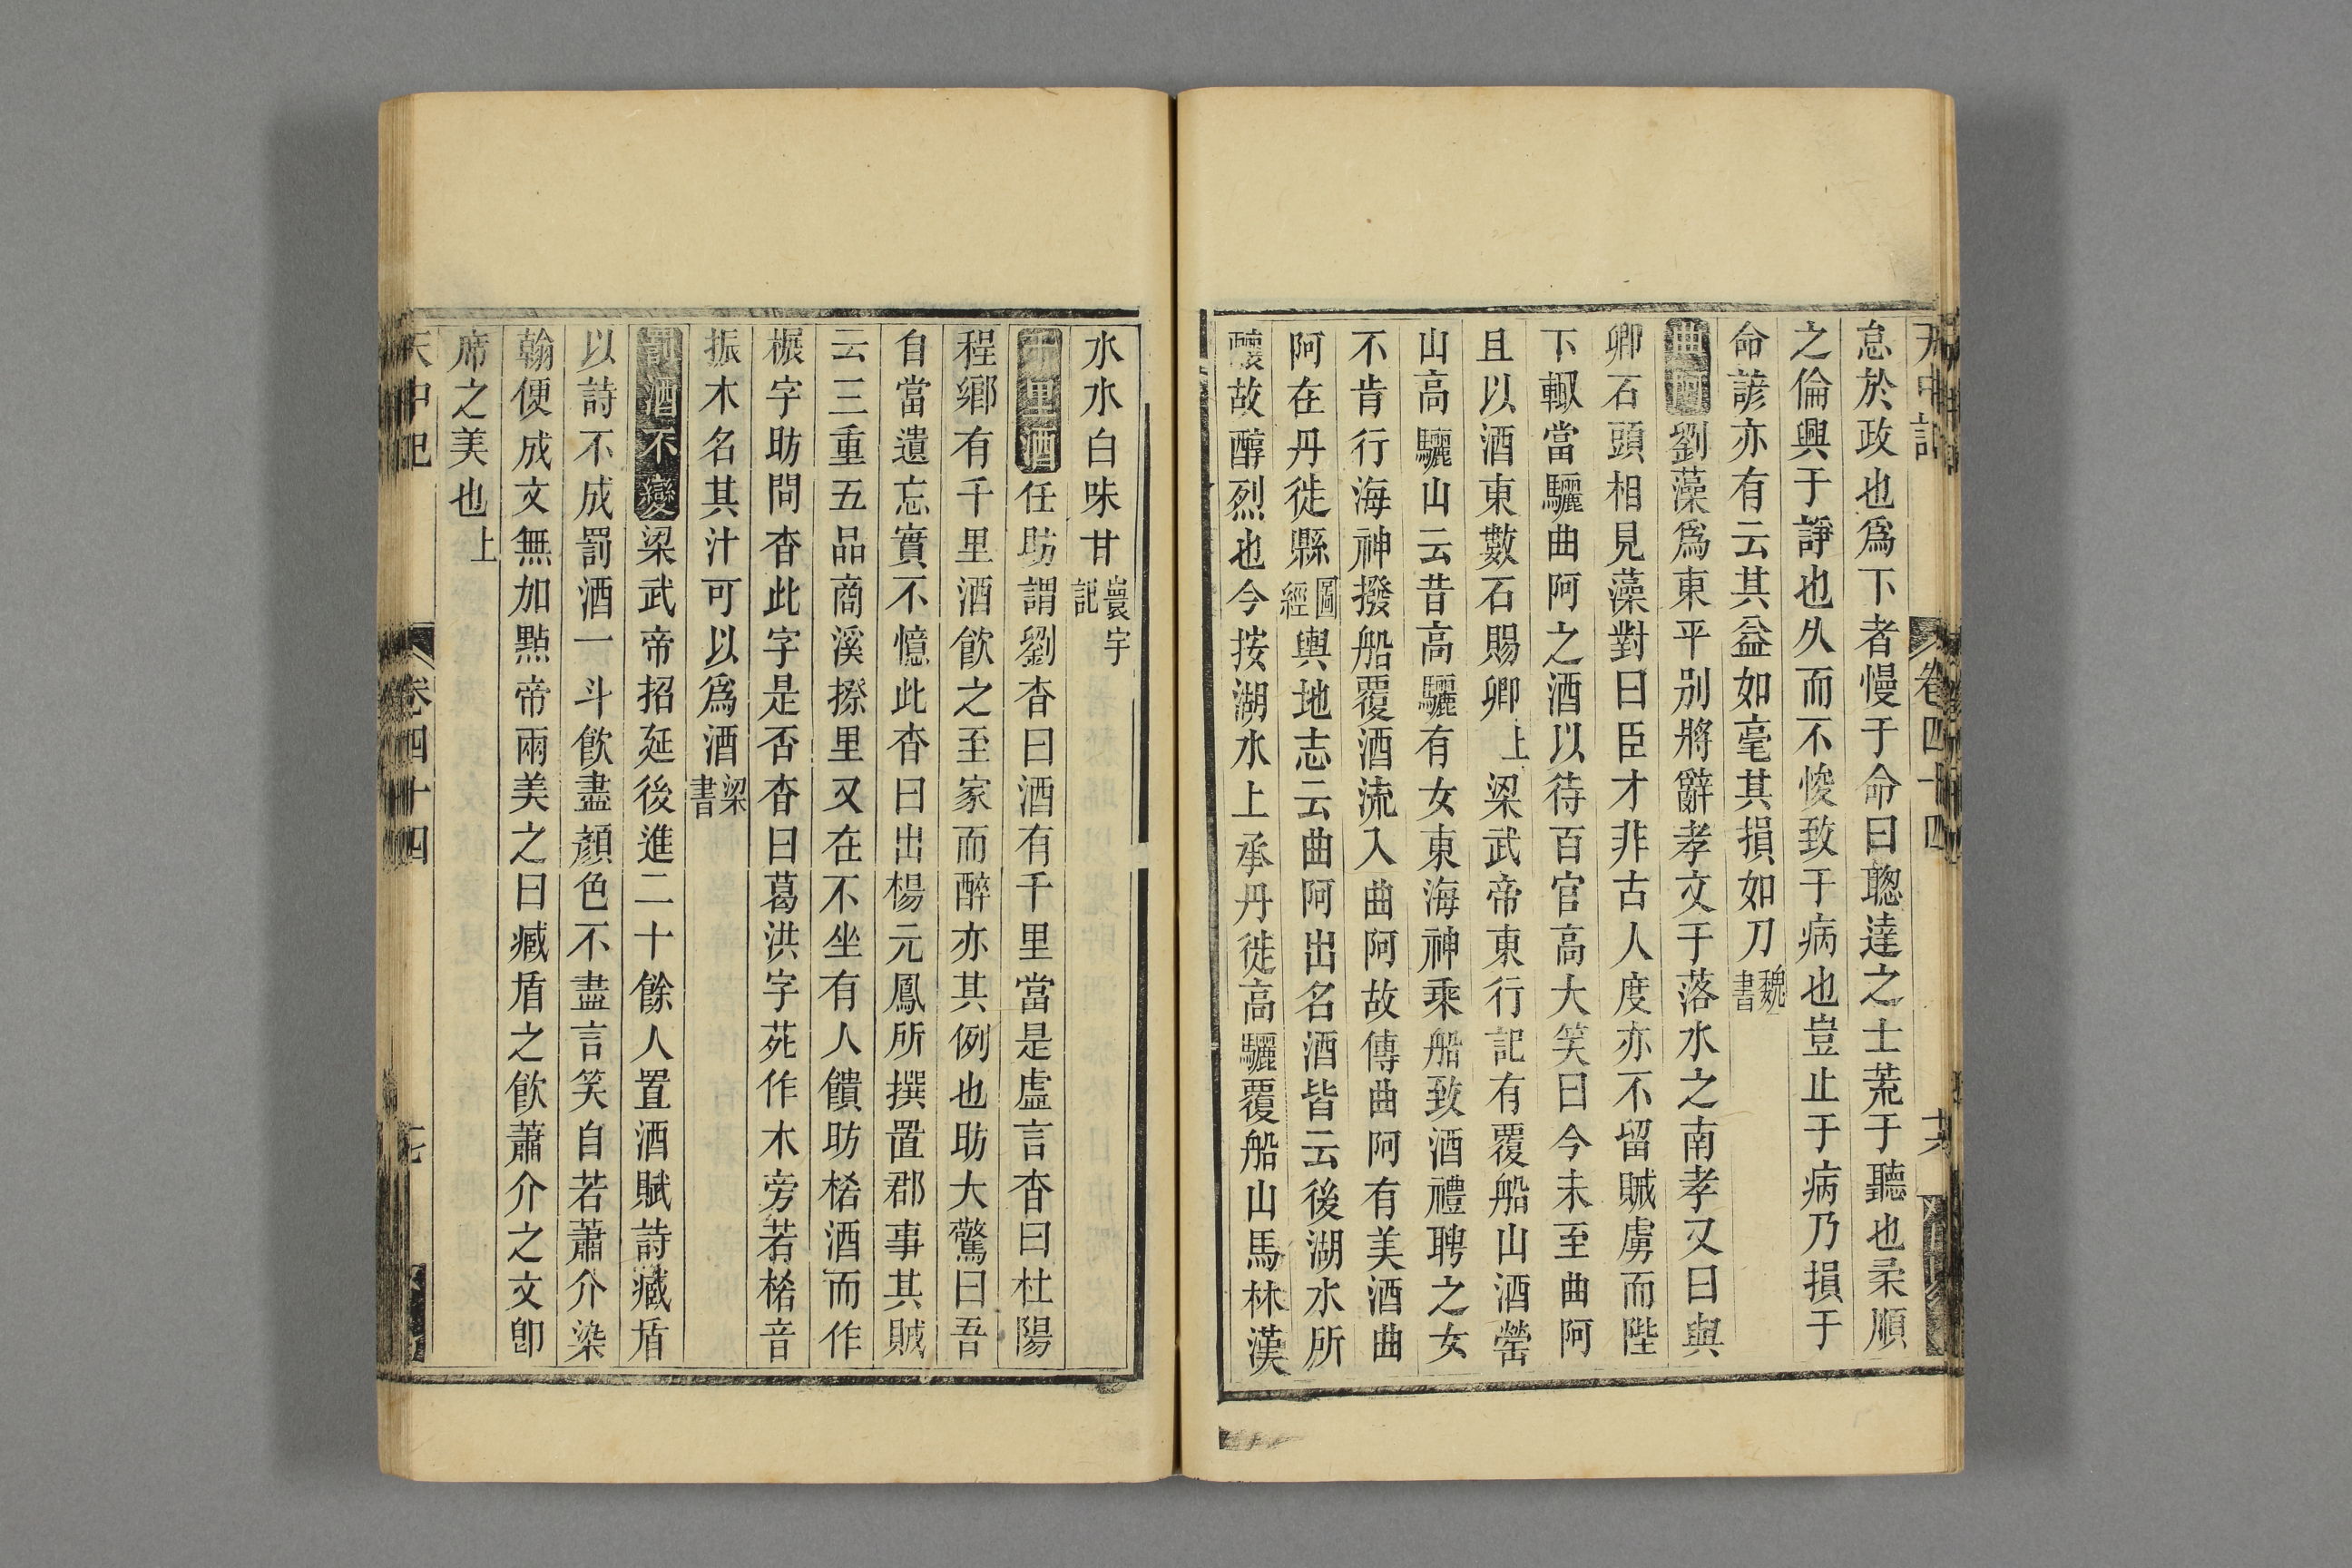 天中記 卷四十四 十六
怠於政也爲下者慢于命曰聰達之士荒于聽也柔順
之倫興于諍也久而不悛致于病也豈止于病乃損于
命諺亦有云其益如毫其損如刀魏書
曲阿劉藻爲東平別將辭孝文于落水之南孝文曰與
卿石頭相見藻對曰臣才非古人度亦不留賊虜而陛
下輙當驪曲阿之酒以待百官高大笑曰今未至曲阿
且以酒東數石賜卿上梁武帝東行記有覆船山酒罃
山高驪山云昔高驪有女東海神乘船致酒禮聘之女
不肯行海神撥船覆酒流入曲阿故傳曲阿有美酒曲
阿在丹徙縣圖經輿地志云曲阿出名酒皆云後湖水所
釀故醇烈也今按湖水上承丹徙高驪覆船山馬林漢
水水白味甘寰宇記
千里酒任昉謂劉杳曰酒有千里當是虛言杳曰杜陽
程鄉有千里酒飲之至家而醉亦其例也昉大驚曰吾
自當遺忘實不憶此杳曰出楊元鳳所撰置郡事其賊
云三重五品商溪摖里又在不坐有人饋昉楉酒而作
榐字昉問杳此字是否杳曰葛洪字苑作木旁若楉音
振木名其汁可以爲酒梁書
罰酒不變梁武帝招延後進二十餘人置酒賦詩臧盾
以詩不成罰酒一斗飲盡顏色不盡言笑自若蕭介染
翰便成文無加點帝兩美之曰臧盾之飲蕭介之文卽
席之美也上
天中記 卷四十四 十七